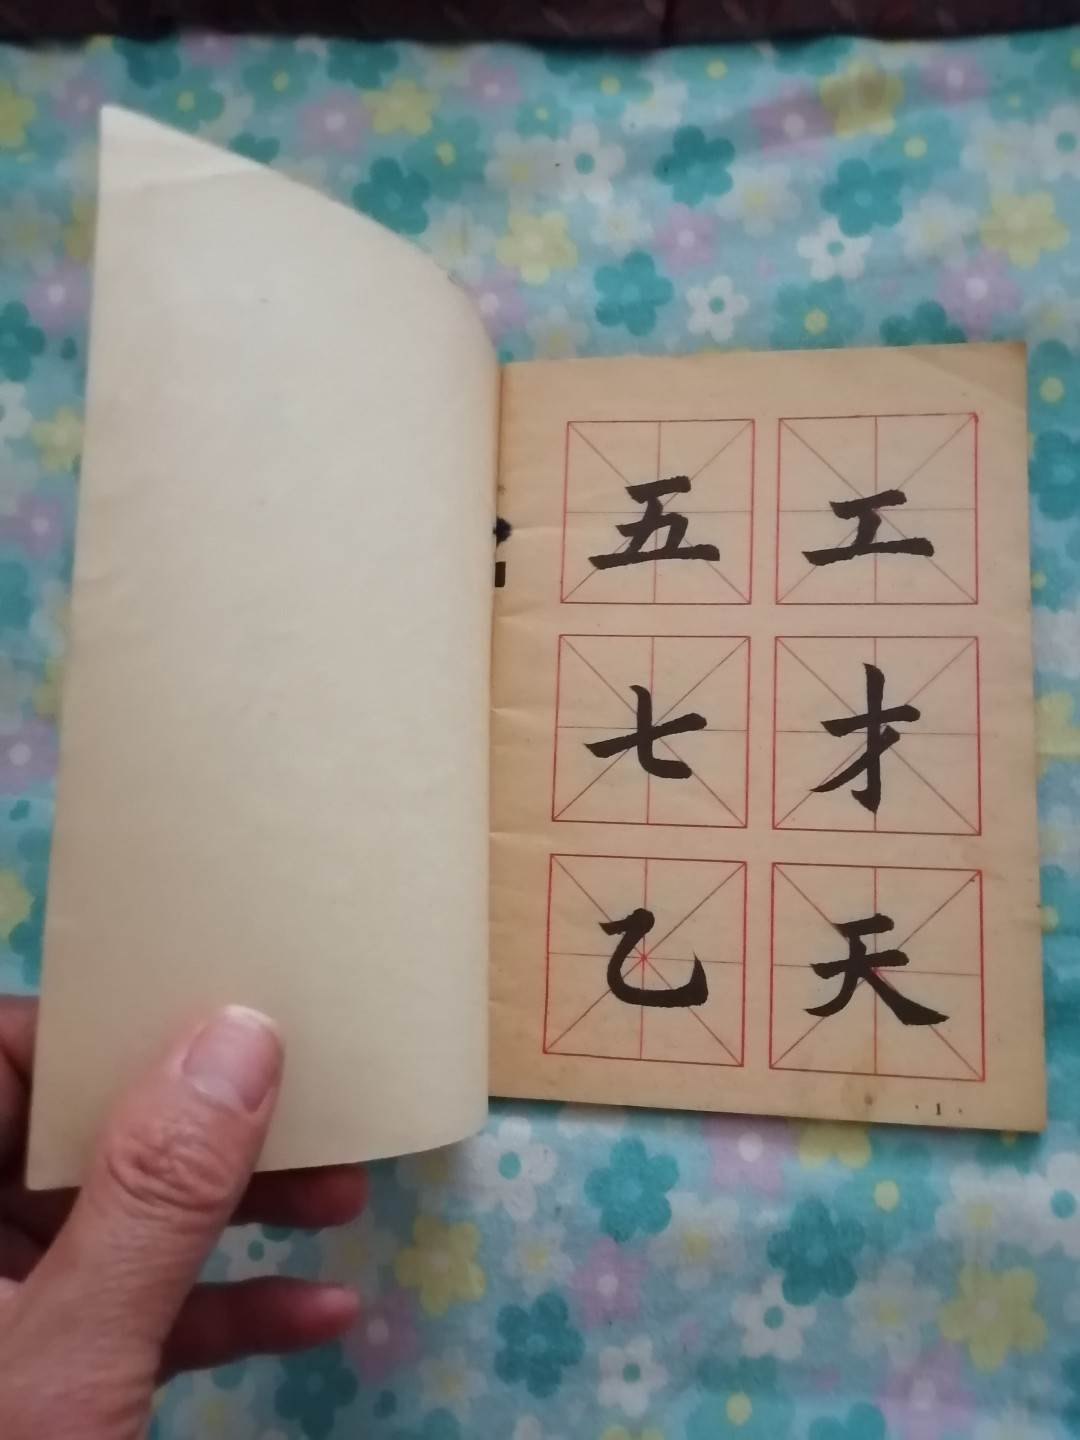 五 工
七 才
乙 天
· 1 ·